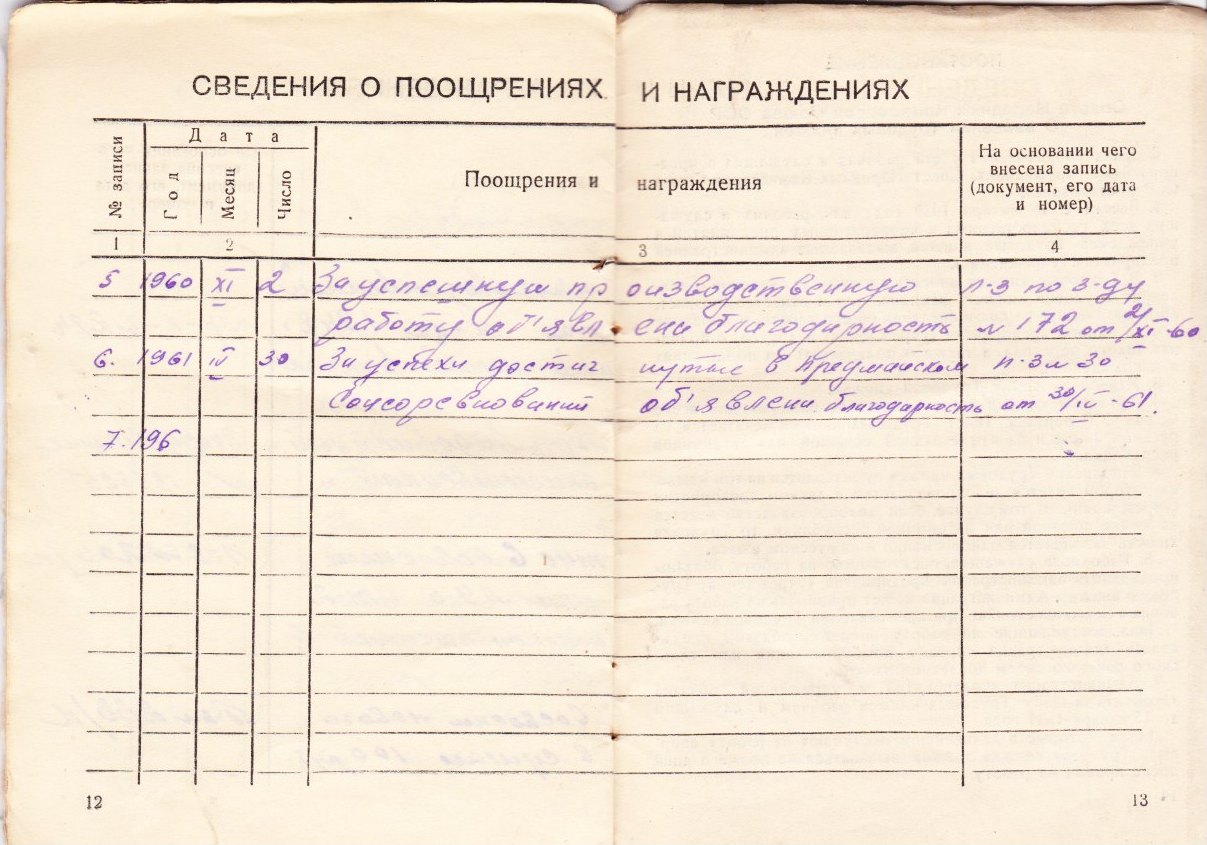 СВЕДЕНИЯ О ПООЩРЕНИЯХ И НАГРАЖДЕНИЯХ
№ записи
Дата
Год
Месяц
Число
Поощрения и награждения
На основании чего
внесена запись
(документ, его дата
и номер)
1 2 3 4
5 1960 XI 2 За успешную производственную п-з по з-ду
работу об'явлена благодарность № 172 от 2/XI-60
6. 1961 IV 30 За успехи достигнутые в предмайском п-з № 30
Соцсоревновании об'явлена благодарность от 30/IV-61.
7. 196
12
13